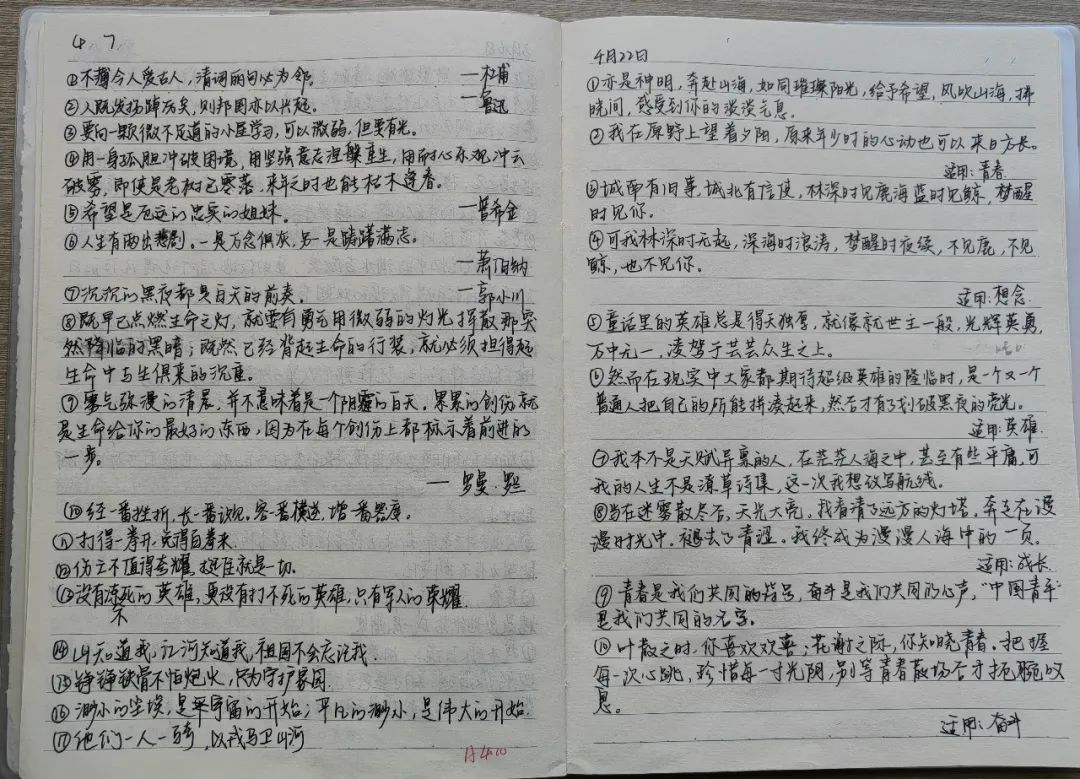 4 7
①不薄今人爱古人，清词丽句必为邻。 —杜甫
②人既发扬踔厉矣，则邦国亦以兴起。 —鲁迅
③要向一颗微不足道的小星学习，可以微弱，但要有光。
④用一身孤胆冲破困境，用坚强意志涅槃重生，用耐心乐观冲云
破雾，即使是老树已零落，来年之时也能枯木逢春。
⑤希望是厄运的忠实的姐妹。 —普希金
⑥人生有两出悲剧。一是万念俱灰，另一是踌躇满志。
—萧伯纳
⑦沉沉的黑夜都是白天的前奏。 —郭小川
⑧既早已点燃生命之灯，就要有勇气用微弱的灯光挥散那突
然降临的黑暗；既然已经背起生命的行装，就必须担得起
生命中与生俱来的沉重。
⑨雾气弥漫的清晨，并不意味着是一个阴霾的白天，累累的创伤就
是生命给你的最好的东西，因为在每个创伤上都标示着前进的
一步。
— 罗曼·罗兰
⑩经一番挫折，长一番识见。容一番横逆，增一番器度。
⑪打得一拳开，免得百拳来。
⑫伤亡不值得夸耀，胜就是一切。
⑬没有冻死的英雄，更没有打不死的英雄，只有军人的荣耀。
不
⑭山知道我，江河知道我，祖国不会忘记我。
⑮铮铮铁骨不怕炮火，只为守护家园。
⑯渺小的尘埃，是宇宙的开始；平凡的渺小，是伟大的开始.
⑰他们一人一骑，以戎马卫山河
4月22日
①亦是神明，奔赴山海，如同璀璨阳光，给予希望，风吹山海，拂
晓间，感受到你的淡淡气息.
②我在原野上望着夕阳，原来年少时的心动也可以来日方长。
适用：青春
③城南有旧事，城北有信使，林深时见鹿海蓝时见鲸，梦醒
时见你。
④可我林深时无起，深海时浪涛，梦醒时夜续，不见鹿，不见
鲸，也不见你。
适用：想念.
⑤童话里的英雄总是得天独厚，就像救世主一般，光辉英勇，
万中无一，凌驾于芸芸众生之上。
⑥然而在现实中大家都期待超级英雄的降临时，是一个又一个
普通人把自己的所能拼凑起来，然后才有了划破黑夜的荧光。
适用：英雄.
⑦我本不是天赋异禀的人，在茫茫人海之中，甚至有些平庸，可
我的人生不是潦草诗集，这一次我想改写航线。
⑧当在迷雾散尽后，天光大亮，我看清了远方的灯塔，奔走在漫
漫时光中，褪去了青涩。我终成为漫漫人海中的一员。
适用：成长.
⑨青春是我们共同的符号，奋斗是我们共同的心声，“中国青年”
是我们共同的名字。
⑩叶散之时，你喜欢欢喜；花谢之际，你知晓青春。把握
每一次心跳，珍惜每一寸光阴，别等青春散场后才扼腕叹
息。
适用：奋斗